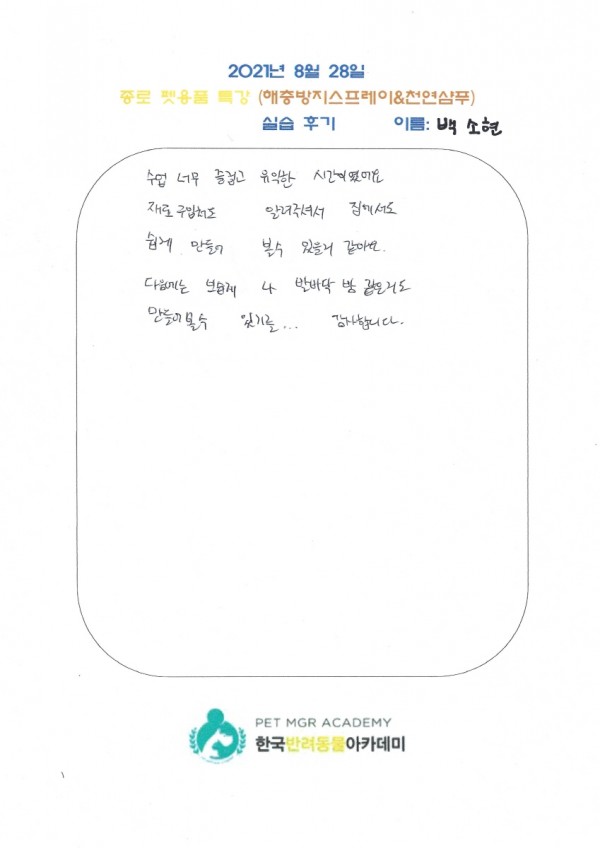 2021년 8월 28일
종로 펫용품 특강 (해충방지스프레이&천연샴푸)
실습 후기 이름: 백 소현
수업 너무 즐겁고 유익한 시간이였어요
재료 구입처도 알려주셔서 집에서도
쉽게 만들어 볼수 있을거 같아요.
다음에는 보습제 나 발바닥 밤 같은거도
만들어볼수 있기를... 감사합니다.
PET MGR ACADEMY
한국반려동물아카데미